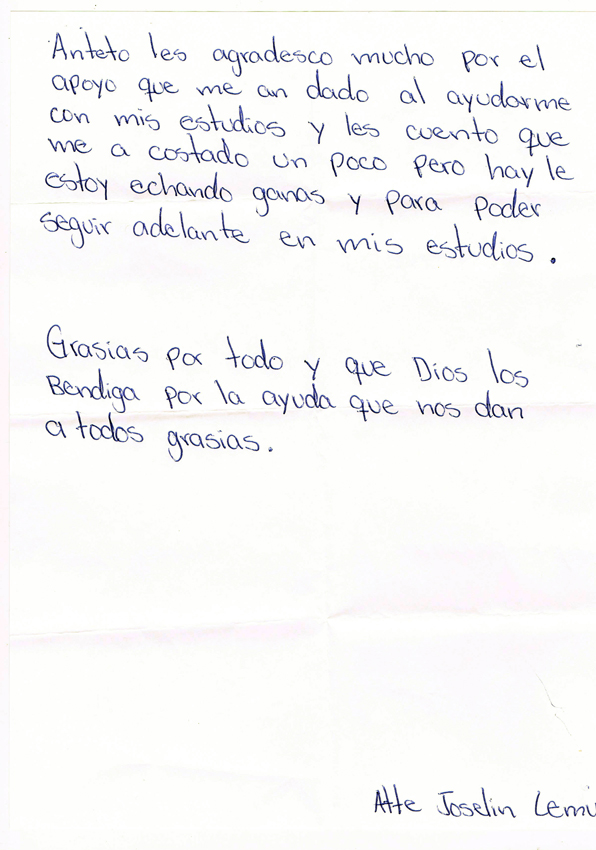 Anteto les agradesco mucho por el
apoyo que me an dado al ayudarme
con mis estudios y les cuento que
me a costado un poco pero hay le
estoy echando ganas y para poder
seguir adelante en mis estudios.
Grasias por todo y que Dios los
Bendiga por la ayuda que nos dan
a todos grasias.
Atte Joselin